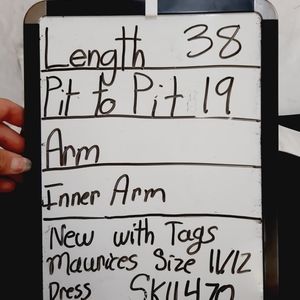 Length 38
Pit to Pit 19
Arm
Inner Arm
New with Tags
Maurices Size 11/12
Dress SKU470